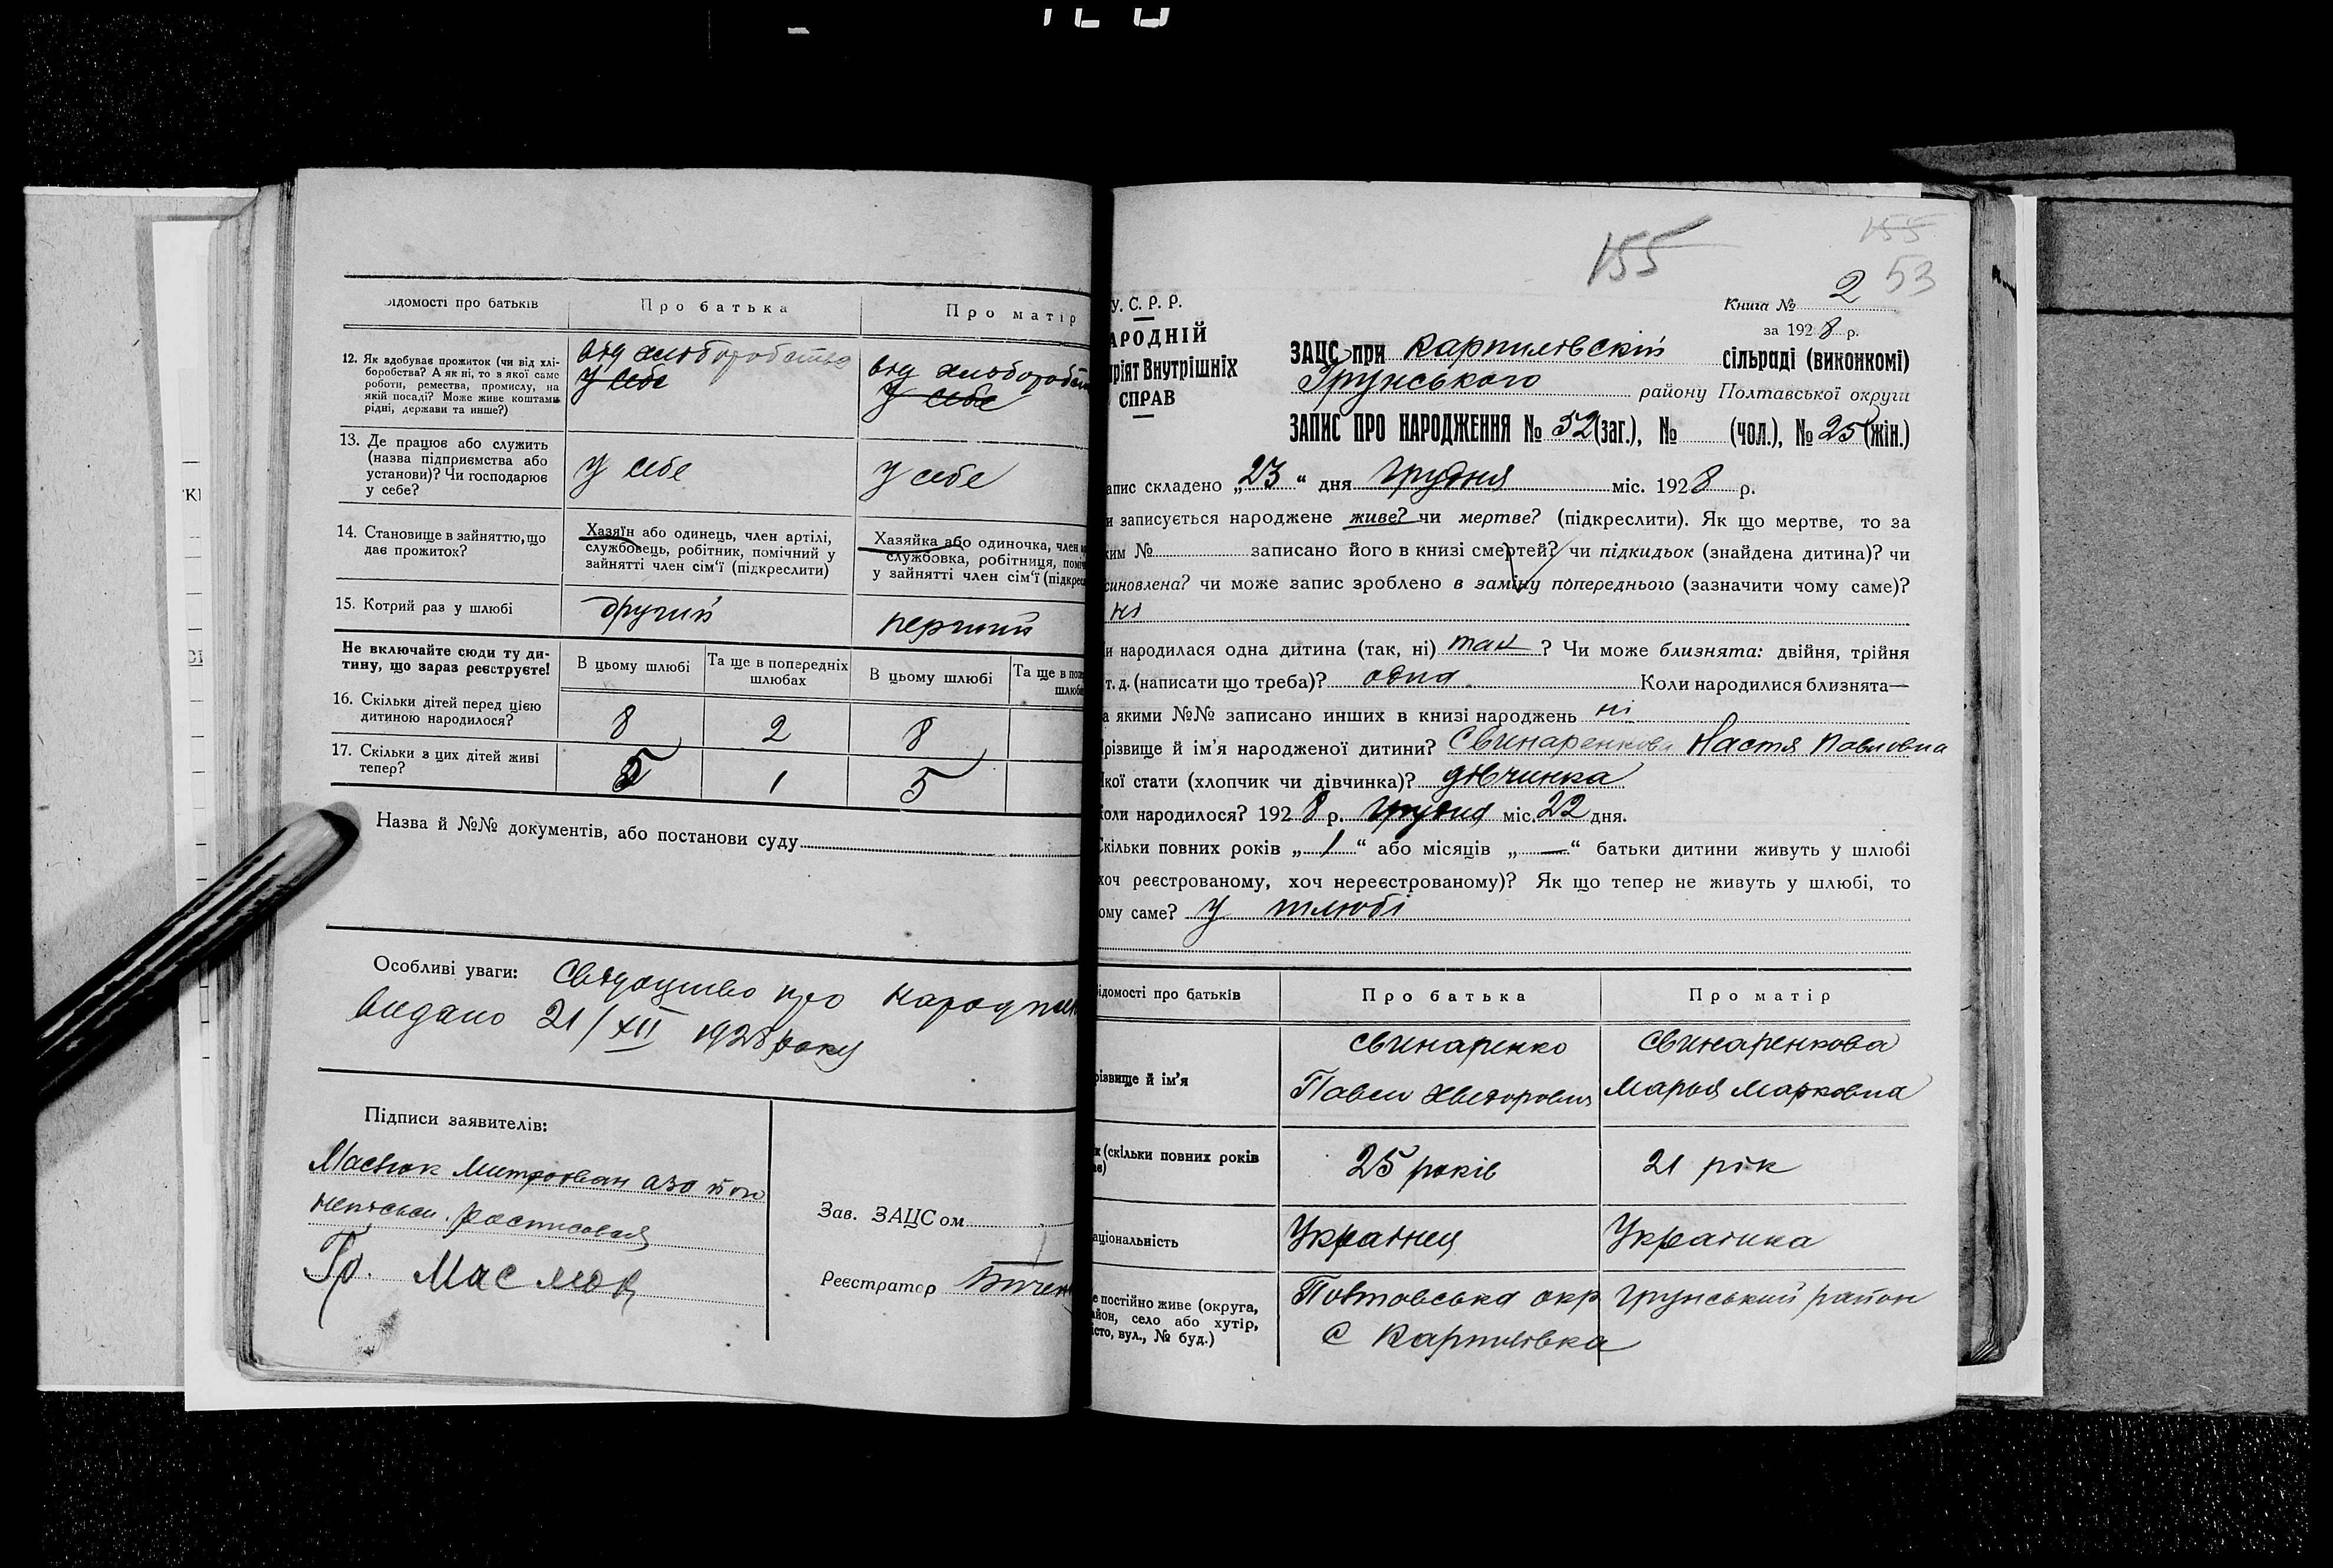 Відомості про батьків
Про батька
Про матір
12. Як здобуває прожиток (чи від хлі-
боробства? А як ні, то з якої саме
роботи, ремества, промислу, на
якій посаді? Може живе коштами
рідні, держави та инше?)
від хліборобства
у себе
від хлібороб
у себе
13. Де працює або служить
(назва підприємства або
установи)? Чи господарює
у себе?
у себе
у себе
14. Становище в зайняттю, що
дає прожиток?
Хазяїн або одинець, член артілі,
службовець, робітник, помічний у
зайнятті член сім'ї (підкреслити)
Хазяйка або одиночка, член
службовка, робітниця,
у зайнятті член сім'ї
15. Котрий раз у шлюбі
другий
перший
Не включайте сюди ту ди-
тину, що зараз реєструєте!
В цьому шлюбі
Та ще в попередніх
шлюбах
В цьому шлюбі
Та ще в
16. Скільки дітей перед цією
дитиною народилося?
8
2
8
17. Скільки з цих дітей живі
тепер?
5
1
5
Назва й №№ документів, або постанови суду
Особливі уваги: Свідоцтво про
видано 21/XII 1928 року
Підписи заявителів:
Маслюк Митрофан
Гр. Маслюк
Зав. ЗАЦСом
Реєстратор
155
155
53
У. С. Р. Р.
Книга № 2
за 1928 р.
АРОДНІЙ
ріят Внутрішніх
СПРАВ
ЗАЦС при Карпилівскій сільраді (виконкомі)
Грунського району Полтавської округи
ЗАПИС ПРО НАРОДЖЕННЯ № 52 (заг.), № (чол.), № 25 (жін.)
апис складено „23“ дня грудня міс. 1928 р.
и записується народжене живе? чи мертве? (підкреслити). Як що мертве, то за
ким № записано його в книзі смертей? чи підкидьок (знайдена дитина)? чи
синовлена? чи може запис зроблено в заміну попереднього (зазначити чому саме)?
ні
и народилася одна дитина (так, ні) так ? Чи може близнята: двійня, трійня
т. д. (написати що треба)? одна Коли народилися близнята—
а якими №№ записано инших в книзі народжень ні
різвище й ім'я народженої дитини? Свинаренкова Настя Павловна
кої стати (хлопчик чи дівчинка)? дівчинка
оли народилося? 1928 р. грудня міс. 22 дня.
Скільки повних років „1“ або місяців „—“ батьки дитини живуть у шлюбі
хоч реєстрованому, хоч нереєстрованому)? Як що тепер не живуть у шлюбі, то
ому саме? У шлюбі
ідомості про батьків
Про батька
Про матір
різвище й ім'я
Свинаренко
Павел
Свинаренкова
Марья Марковна
(скільки повних років
25 років
21 рік
аціональність
Українец
Українка
е постійно живе (округа,
айон, село або хутір,
істо, вул., № буд.)
Повтовська окр Грунський район
С Карпилівка